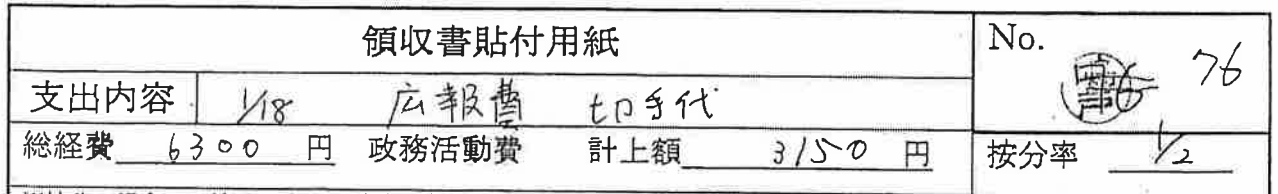 領収書貼付用紙
No. 76
支出内容 1/18 広報費 切手代
総経費 6300 円 政務活動費 計上額 3150 円 按分率 1/2